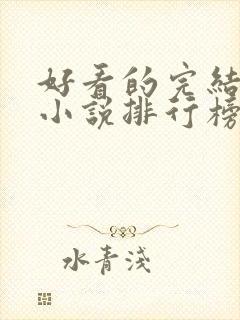 好看的完結
小說排行榜
水青淺